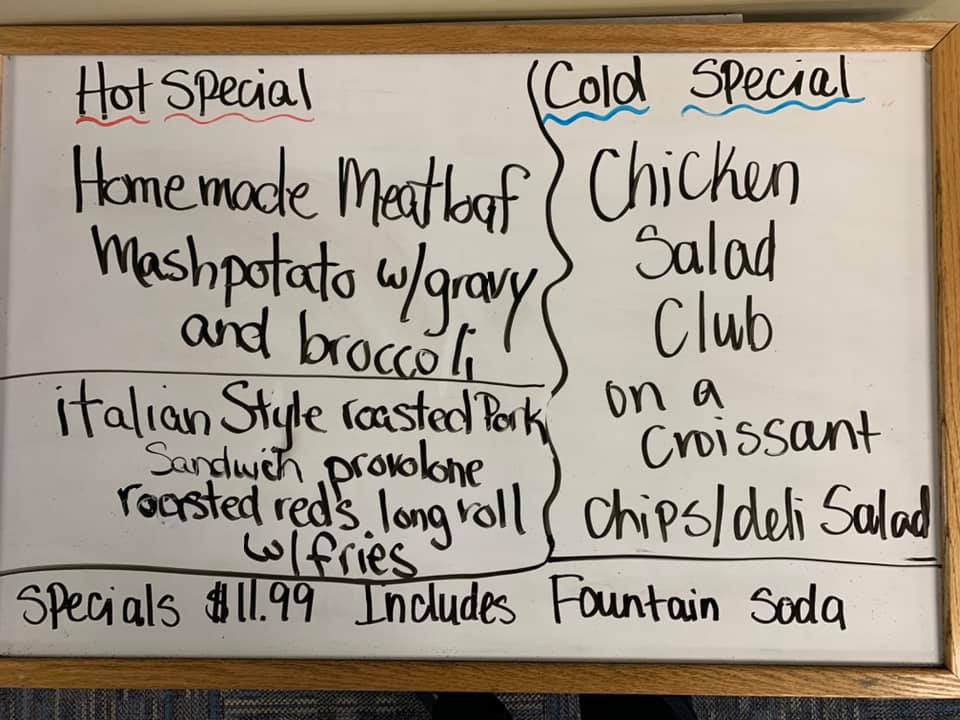 Hot Special
Homemade Meatloaf
Mashpotato w/gravy
and broccoli
italian Style roasted Pork
Sandwich provolone
roasted red's long roll
w/fries
Cold Special
Chicken
Salad
Club
on a
Croissant
Chips/deli Salad
Specials $11.99 Includes Fountain Soda